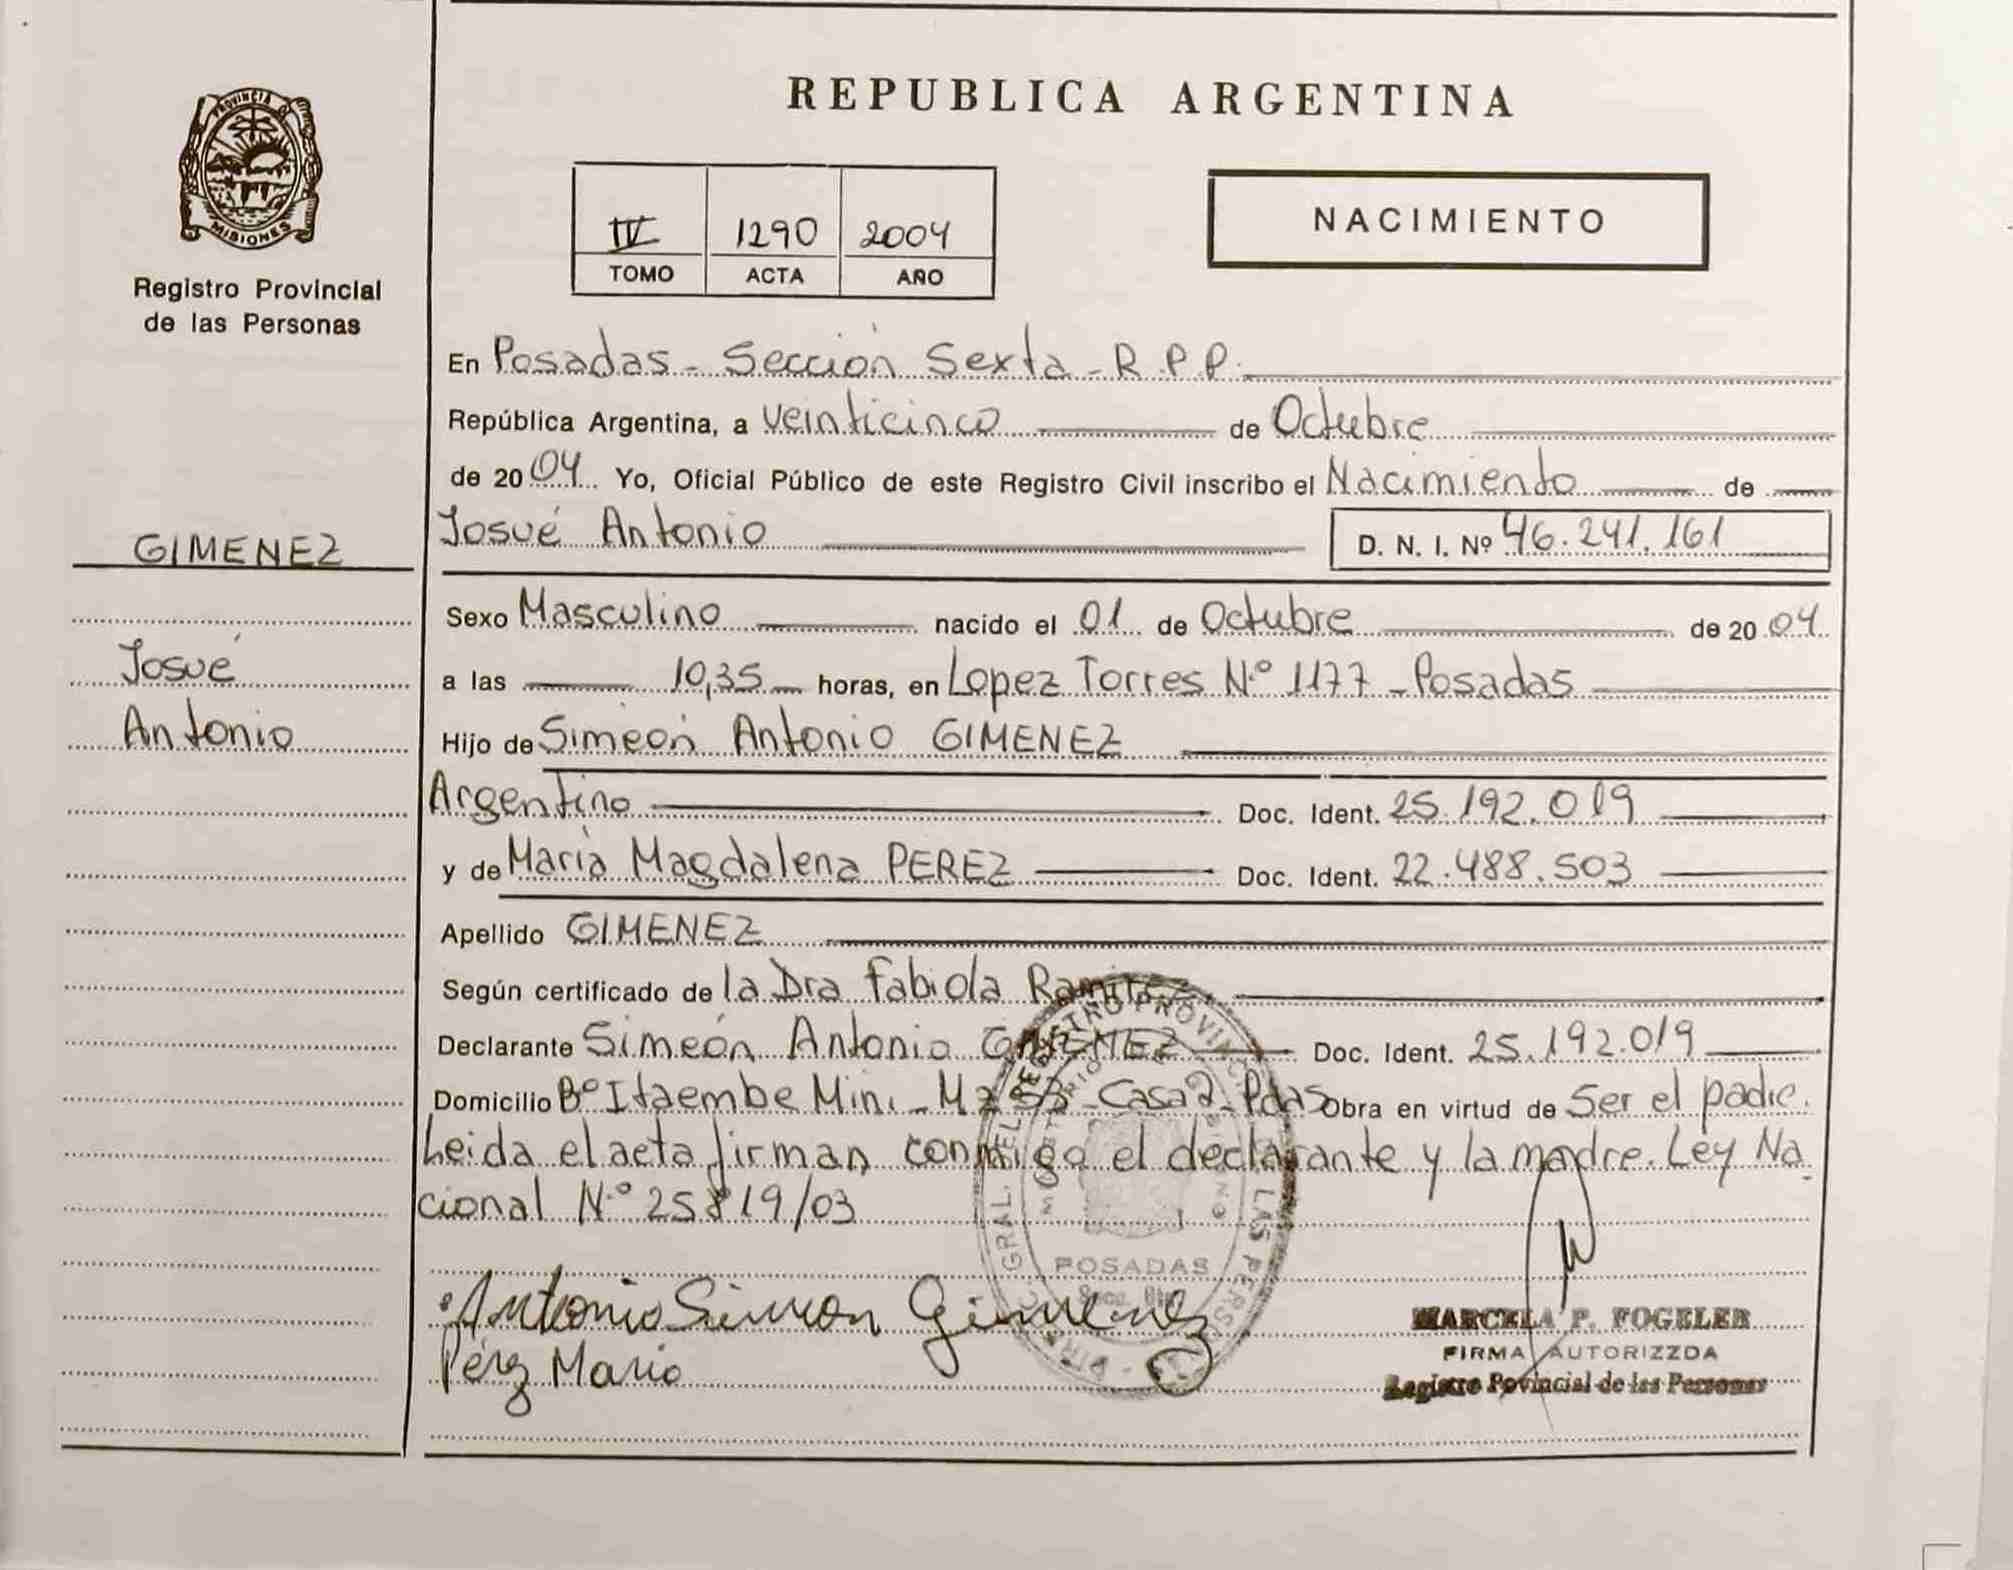 REPUBLICA ARGENTINA
PROVINCIA D
MISIONES
Registro Provincial
de las Personas
IV 1290 2004
TOMO ACTA AÑO
NACIMIENTO
En Posadas - Sección Sexta - R.P.P.
República Argentina, a veinticinco de Octubre
de 2004 Yo, Oficial Público de este Registro Civil inscribo el Nacimiento de
GIMENEZ
Josué Antonio D. N. I. Nº 46.241.161
Sexo Masculino nacido el 01 de Octubre de 2004
Josué
a las 10,35 horas, en Lopez Torres N.º 1177 - Posadas
Antonio
Hijo de Simeón Antonio GIMENEZ
Argentino Doc. Ident. 25.192.019
y de María Magdalena PEREZ Doc. Ident. 22.488.503
Apellido GIMENEZ
Según certificado de la Dra Fabiola Ramirez
Declarante Simeón Antonio GIMENEZ Doc. Ident. 25.192.019
Domicilio Bº Itaembe Mini - Mz 53 - Casa 2 - Pdas Obra en virtud de Ser el padre.
Leida el acta firman conmigo el declarante y la madre. Ley Na
cional N.º 25819/03
POSADAS
Antonio Simeon Gimenez
Pérez Maria
MARCELA P. FOGELER
FIRMA AUTORIZZDA
Registro Povincial de las Personas